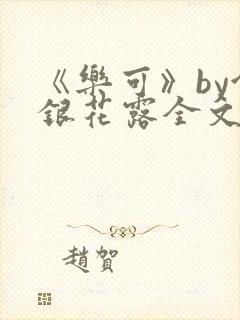 《樂可》by
銀花露全文
趙賀